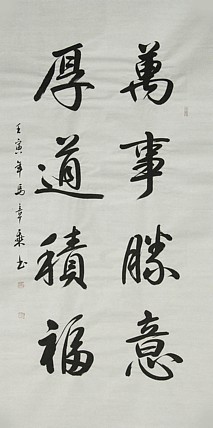 萬事勝意
厚道積福
壬寅年馬章乘書